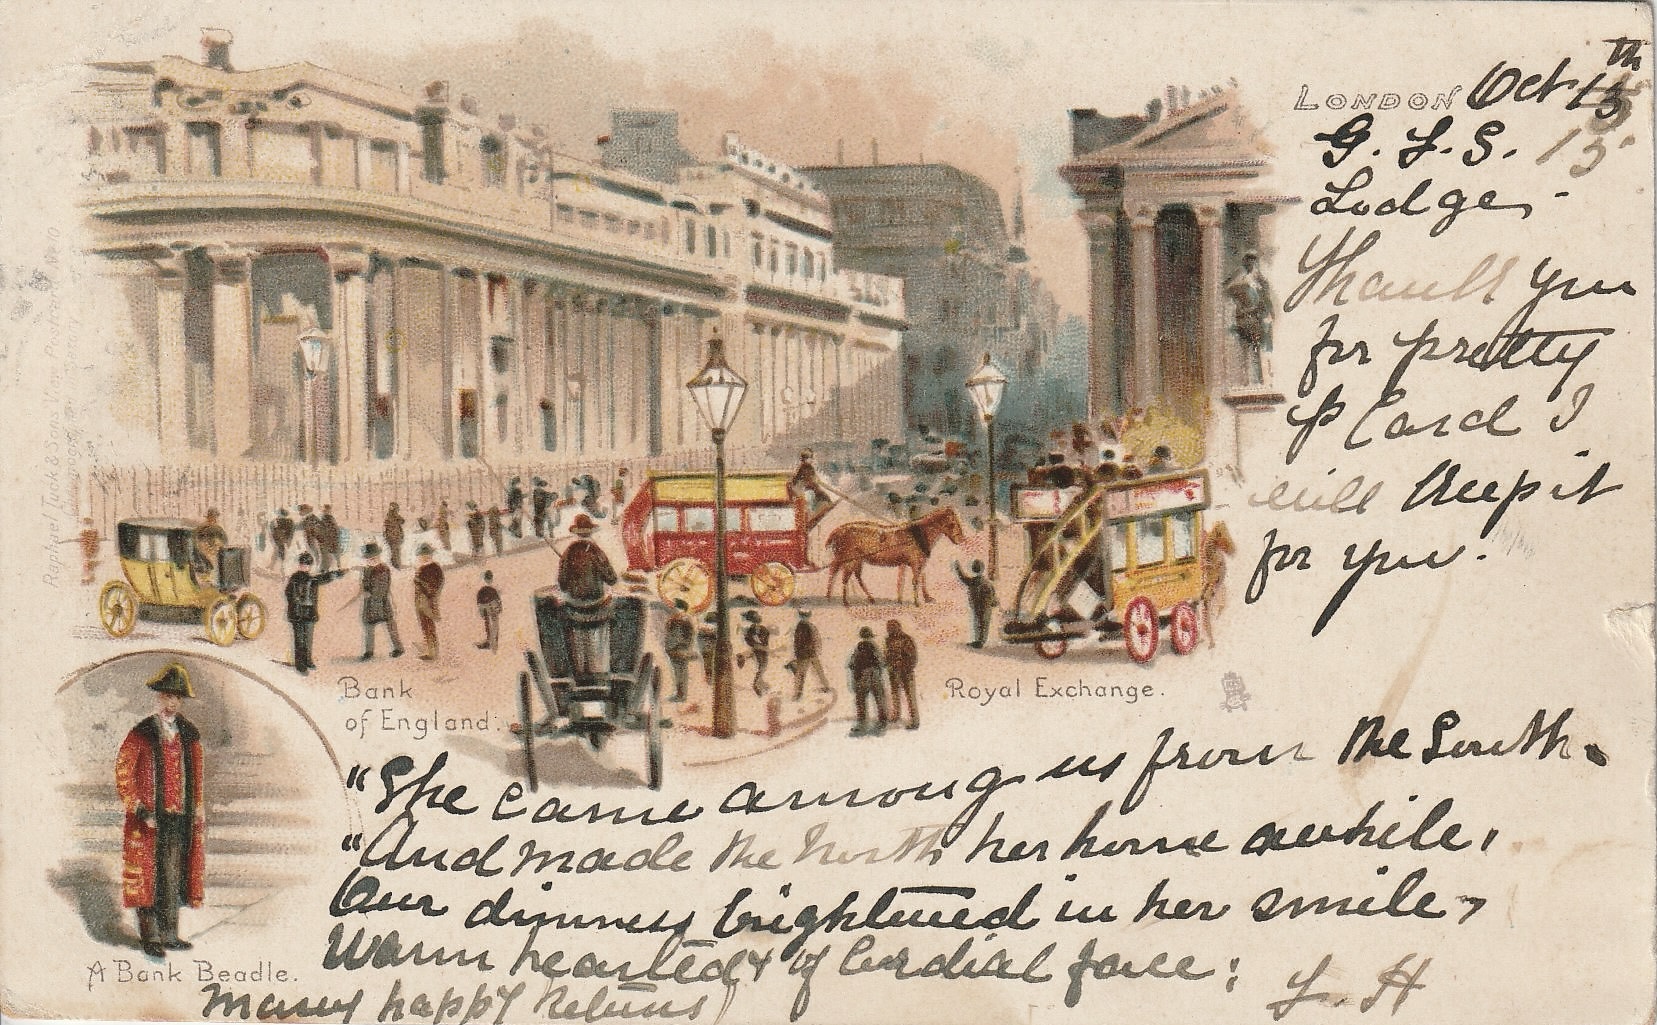 LONDON Oct 15th
G. F. S. 15
Lodge,
Thank you
for pretty
p Card I
will keep it
for you.
Raphael Tuck & Sons View Postcard No 10
Bank
of England.
Royal Exchange.
A Bank Beadle.
"She came among us from the South.
"And made the North her home awhile,
Our dimness brightened in her smile,
Warm hearted & of Cordial face;
Many happy Returns
L. H